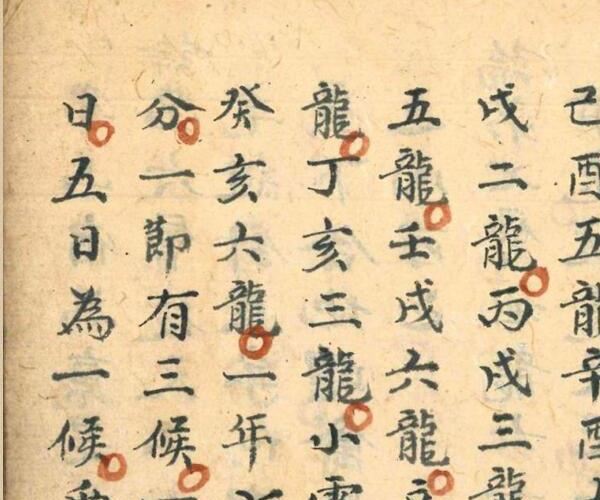 己酉五龍辛酉
戌二龍丙戌三龍
五龍壬戌六龍
龍丁亥三龍小雪
癸亥六龍一年
分一節有三候
日五日為一候